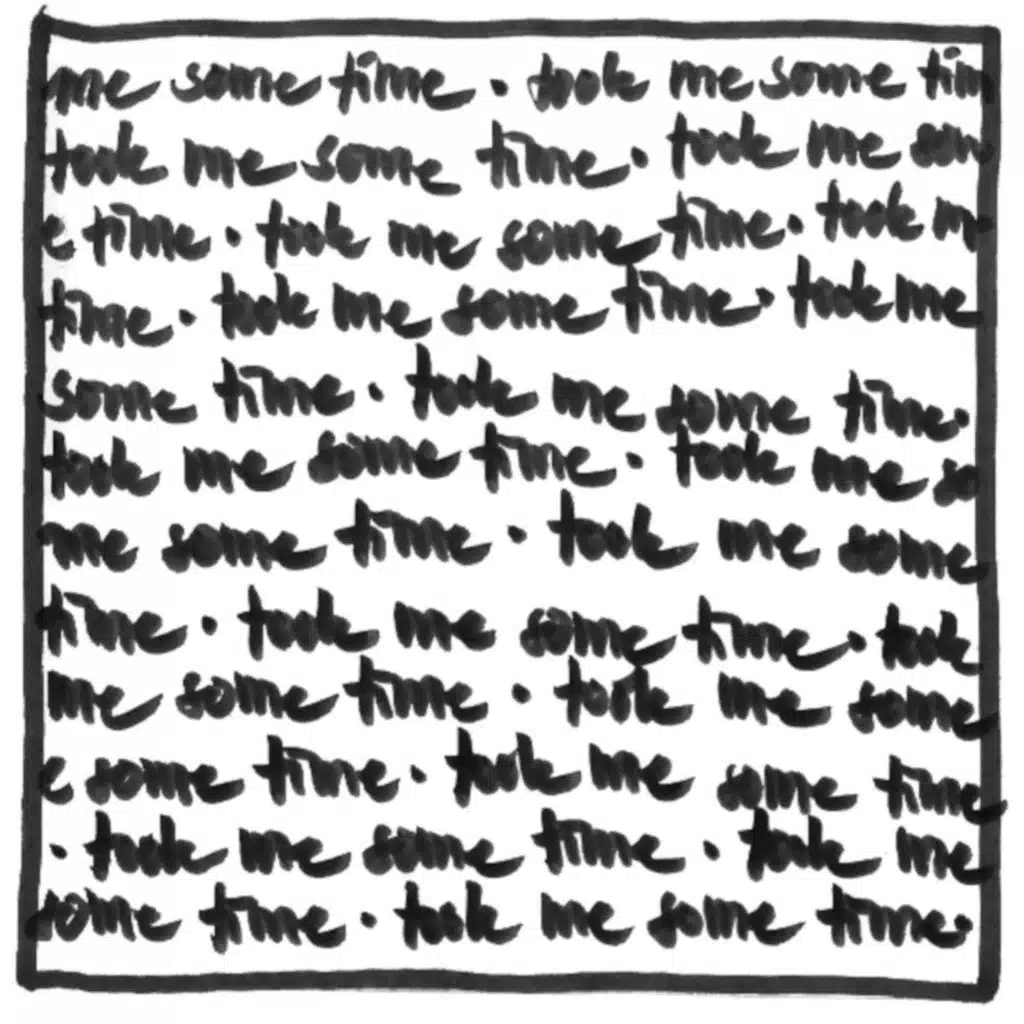 me some time · took me some tim
took me some time · took me som
e time · took me some time · took m
time · took me some time · took me
some time · took me some time ·
took me some time · took me so
me some time · took me some
time · took me some time · took
me some time · took me some
e some time · took me some time
· took me some time · took me
some time · took me some time ·